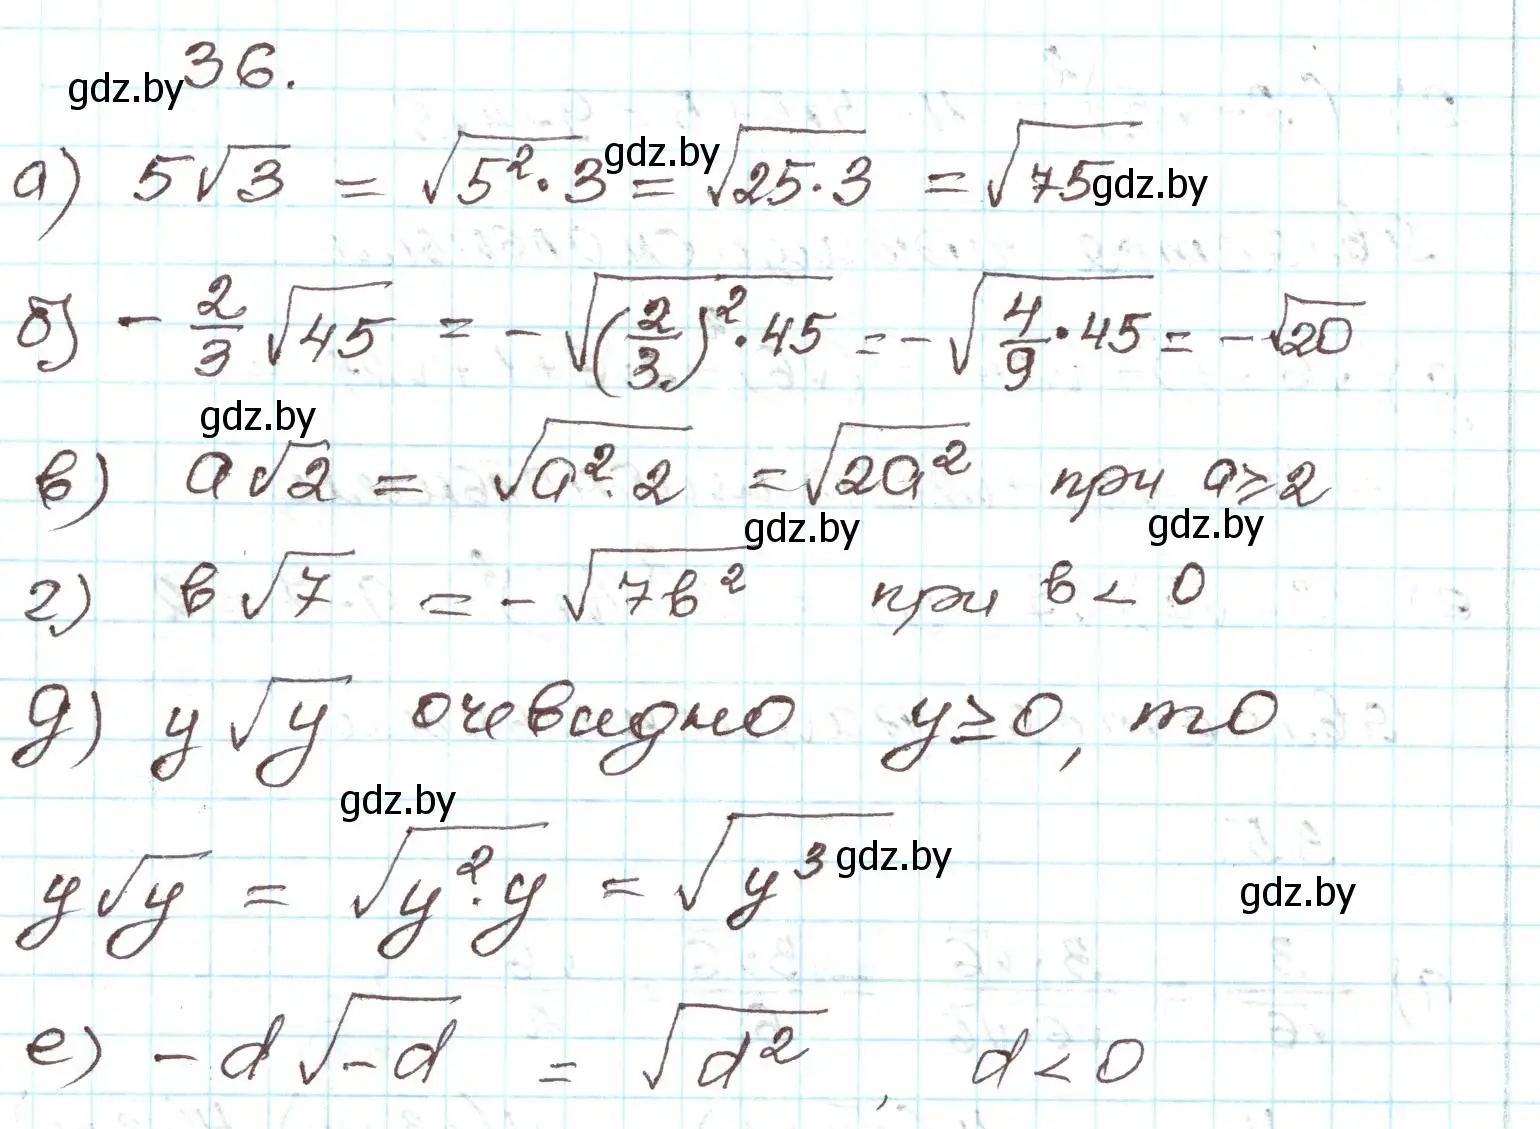 36.
gdz.by
а) 5√3 = √(5²·3) = √(25·3) = √75
gdz.by
gdz.by
б) - 2/3 √45 = -√((2/3)²·45) = -√(4/9·45) = -√20
gdz.by
в) a√2 = √(a²·2) = √(2a²) при a ≥ 2
gdz.by
gdz.by
г) в√7 = -√(7в²) при в < 0
д) y√y очевидно y ≥ 0, то
gdz.by
y√y = √(y²·y) = √(y³)
gdz.by
gdz.by
е) -d√(-d) = √(d²), d < 0